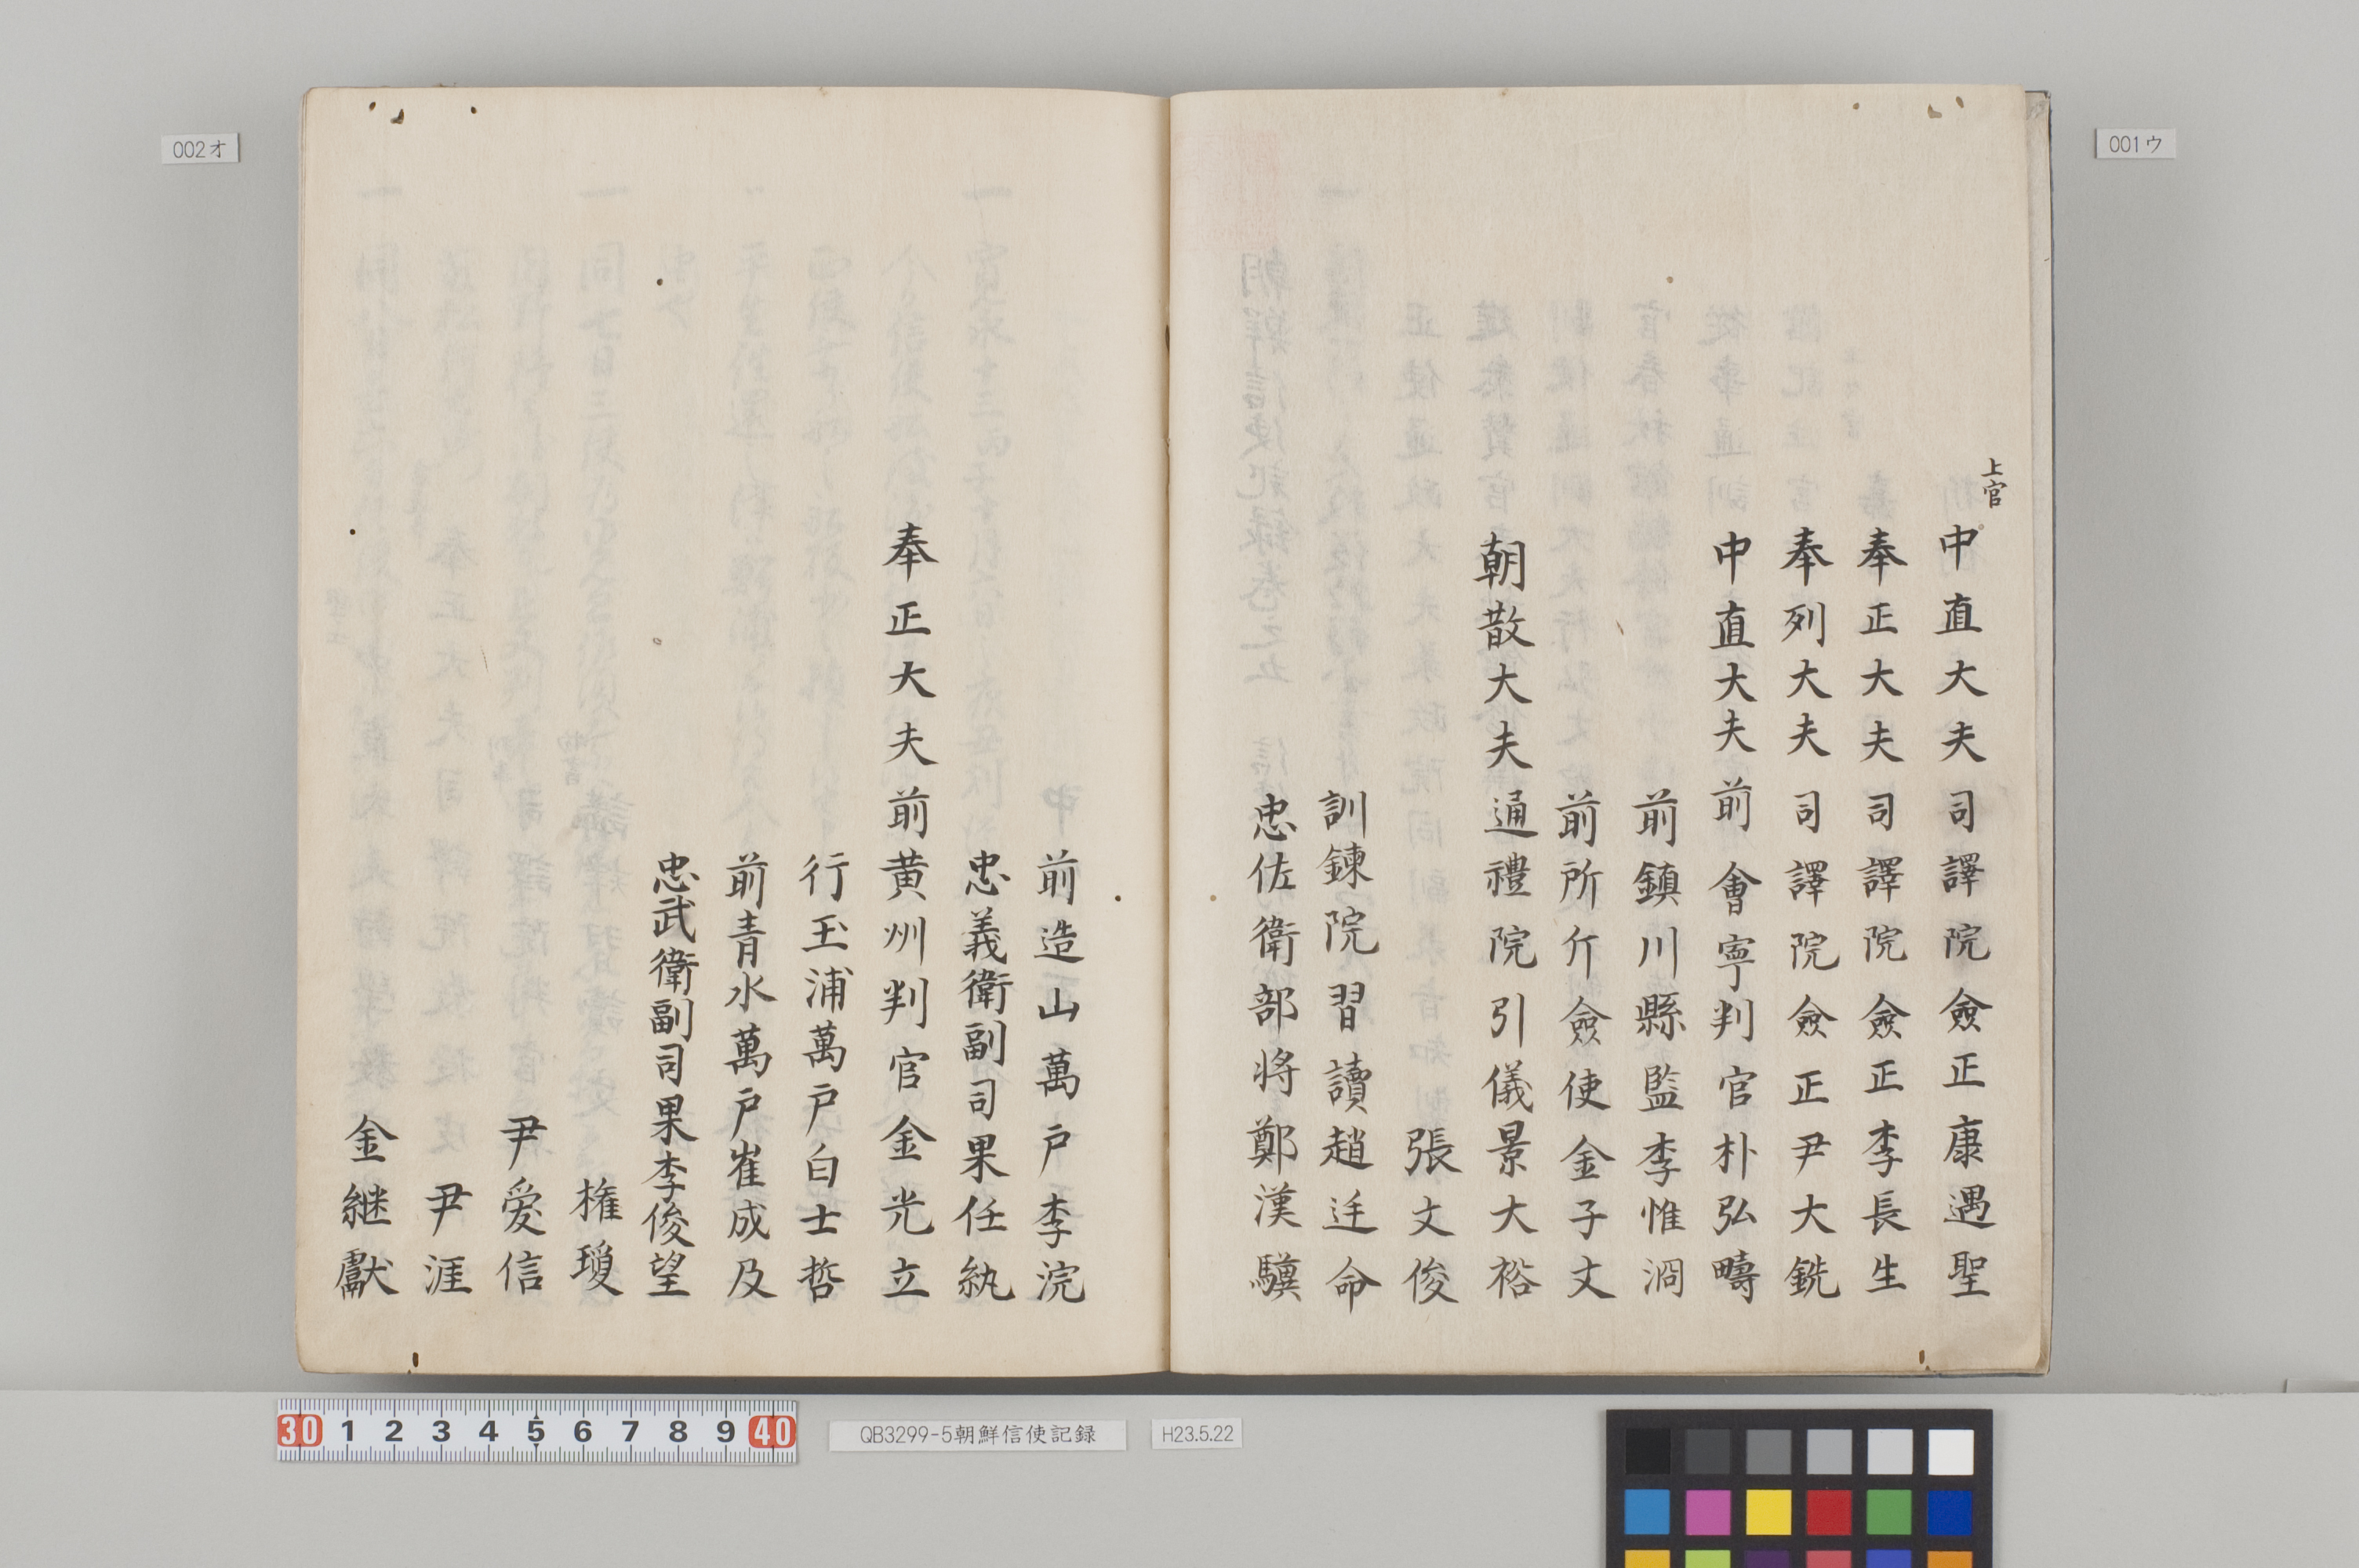 上官
中直大夫司譯院僉正康遇聖
奉正大夫司譯院僉正李長生
奉列大夫司譯院僉正尹大銑
中直大夫前會寧判官朴弘疇
前鎮川縣監李惟泂
前所斤僉使金子文
朝散大夫通禮院引儀景大裕
張文俊
訓鍊院習讀趙廷命
忠佐衛部将鄭漢驥
前造山萬戸李浣
忠義衛副司果任紈
奉正大夫前黄州判官金光立
行玉浦萬戸白士哲
前青水萬戸崔成及
忠武衛副司果李俊望
権瓊
尹愛信
尹涯
金継獻
001ウ
002オ
30 1 2 3 4 5 6 7 8 9 40
QB3299-5朝鮮信使記録
H23.5.22